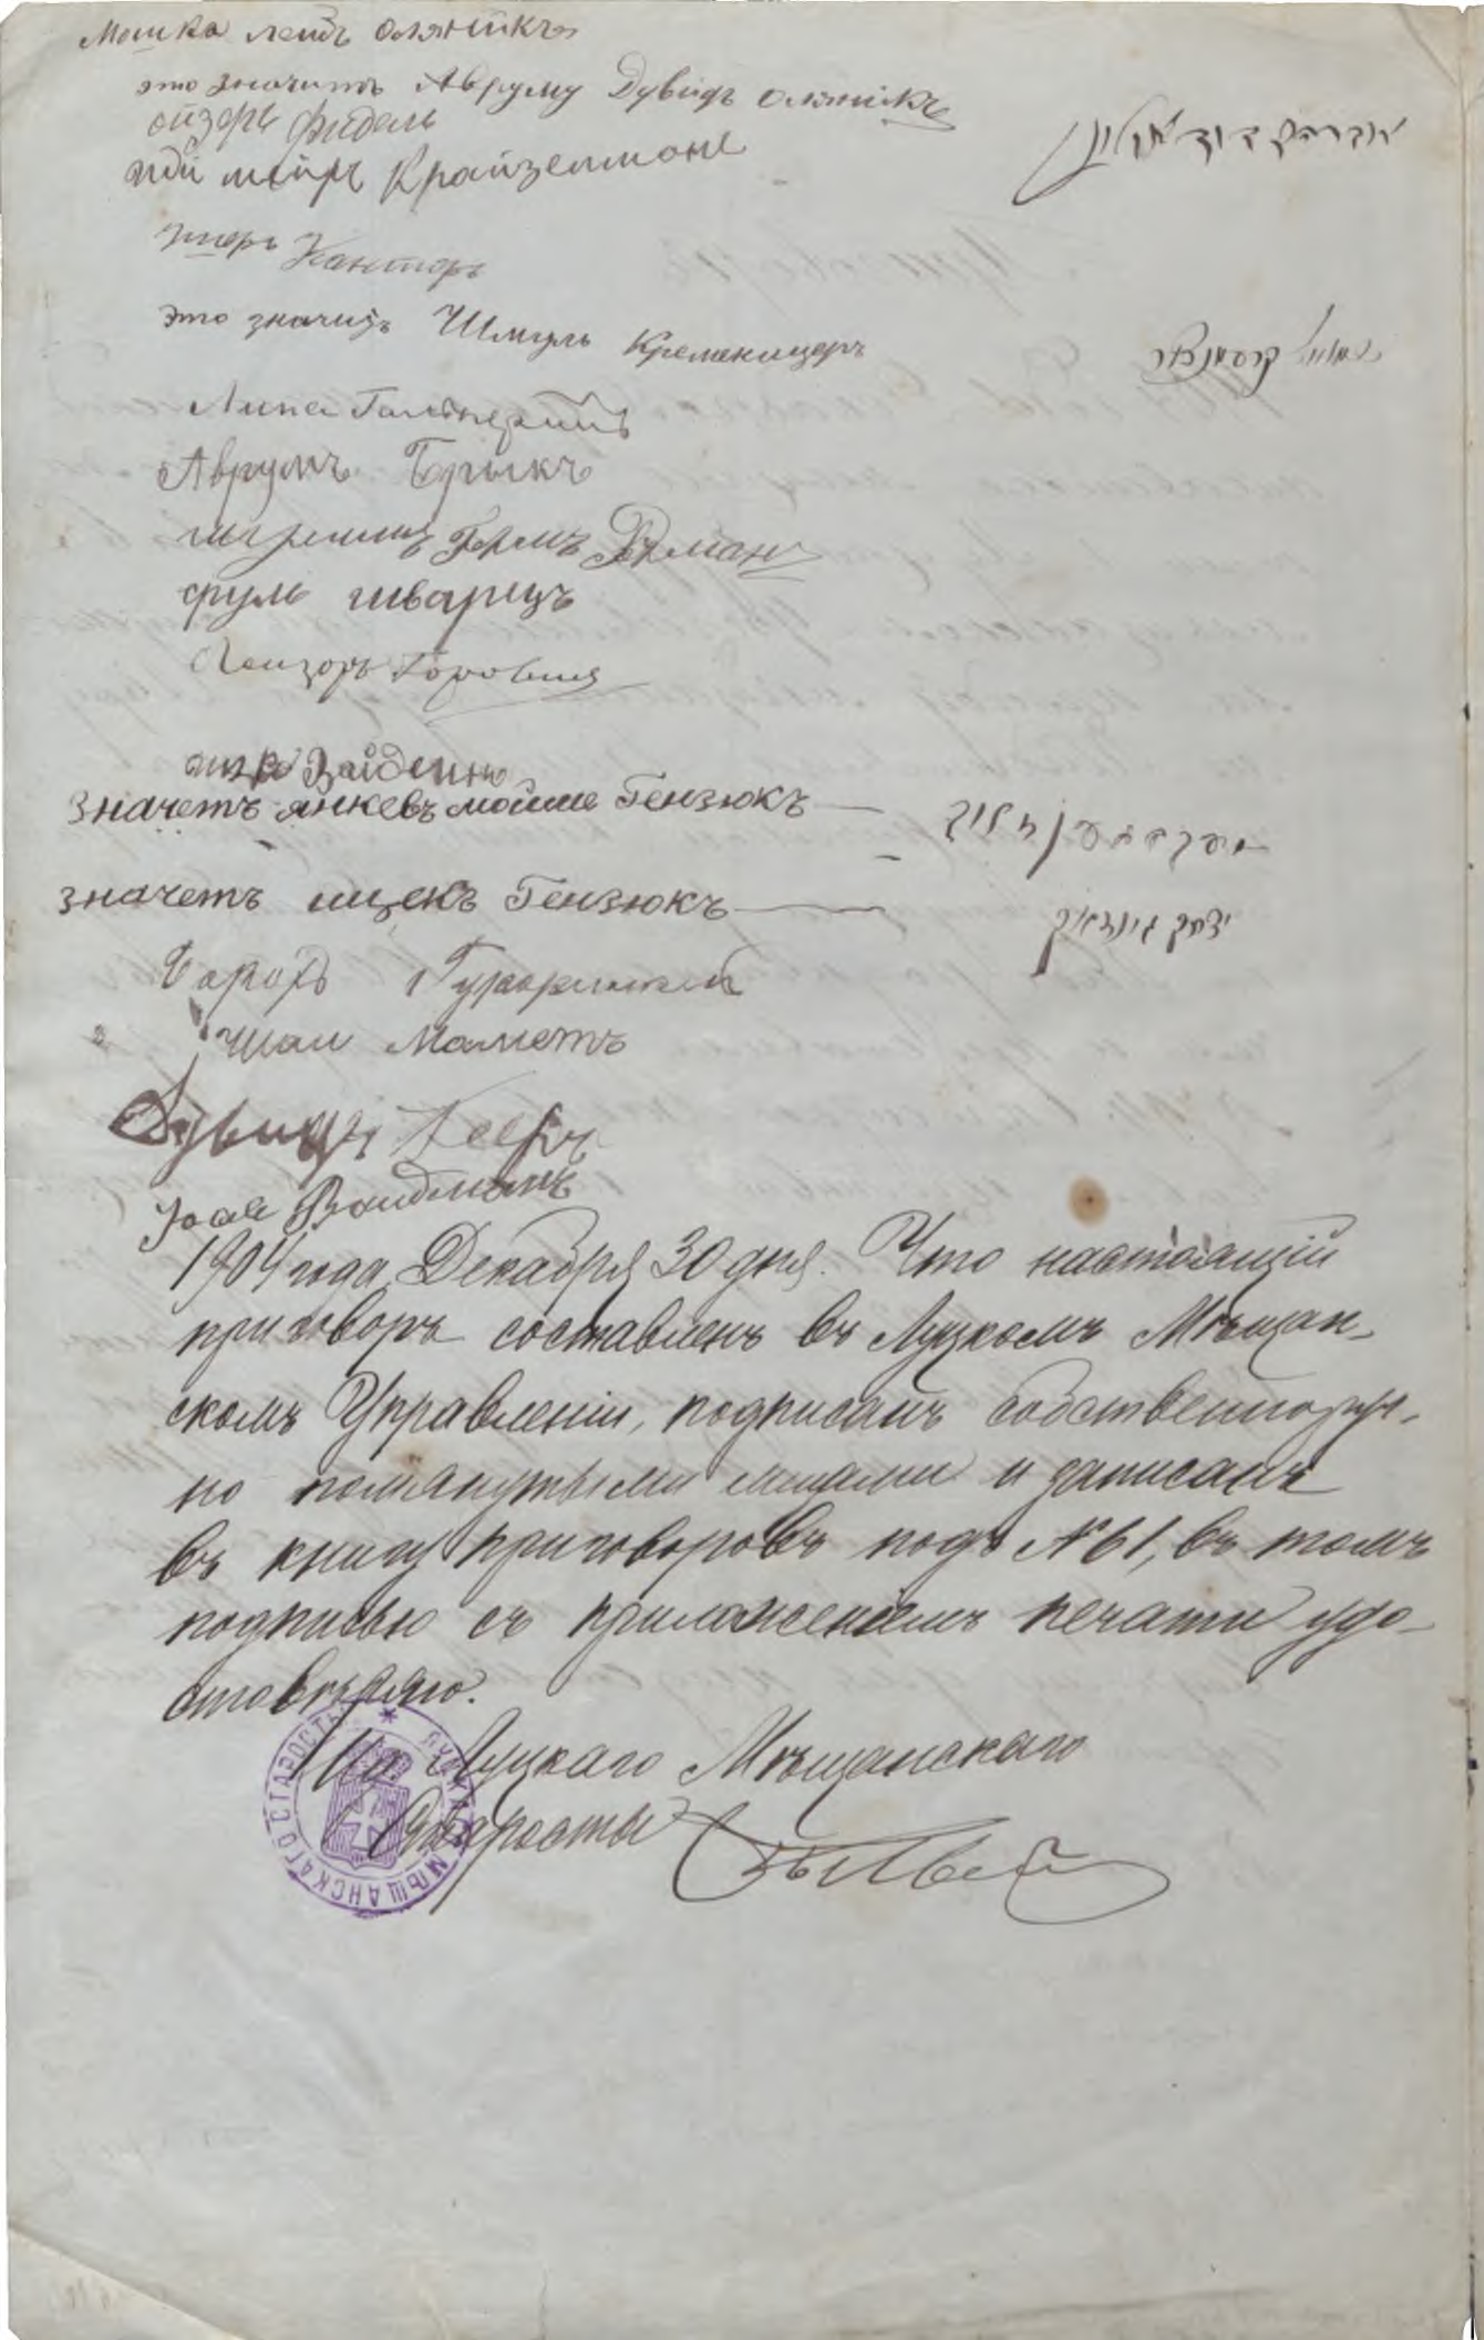 Мошка лейбъ Олейникъ
это значитъ Аврумъ Дувидъ Олейникъ אברהם דוד
ойзеръ фидель
мейръ Крайзелмонъ
Канторъ
это значитъ Шмуль Кременицеръ שמואל קרעמניצר
Липа Гальперинъ
Аврумъ Брыкъ
сруль шварцъ
Лейзоръ Горовицъ
значетъ янкевъ мойше Гензюкъ —
значетъ ицекъ Гензюкъ — יצחק גינזיוק
Маметъ
Дувидъ
Ройдманъ
1904 года Декабря 30 дня. Что настоящій
приговоръ составленъ въ Луцкомъ Мѣщан-
скомъ Управленіи, подписанъ собственноруч-
но помянутыми лицами и записанъ
въ книгу приговоровъ подъ №61, въ томъ
подписью съ приложеніемъ печати удо-
стовѣряю.
И.о. Луцкаго Мѣщанскаго
Старосты
ЛУЦКАГО МѢЩАНСКАГО СТАРОСТЫ